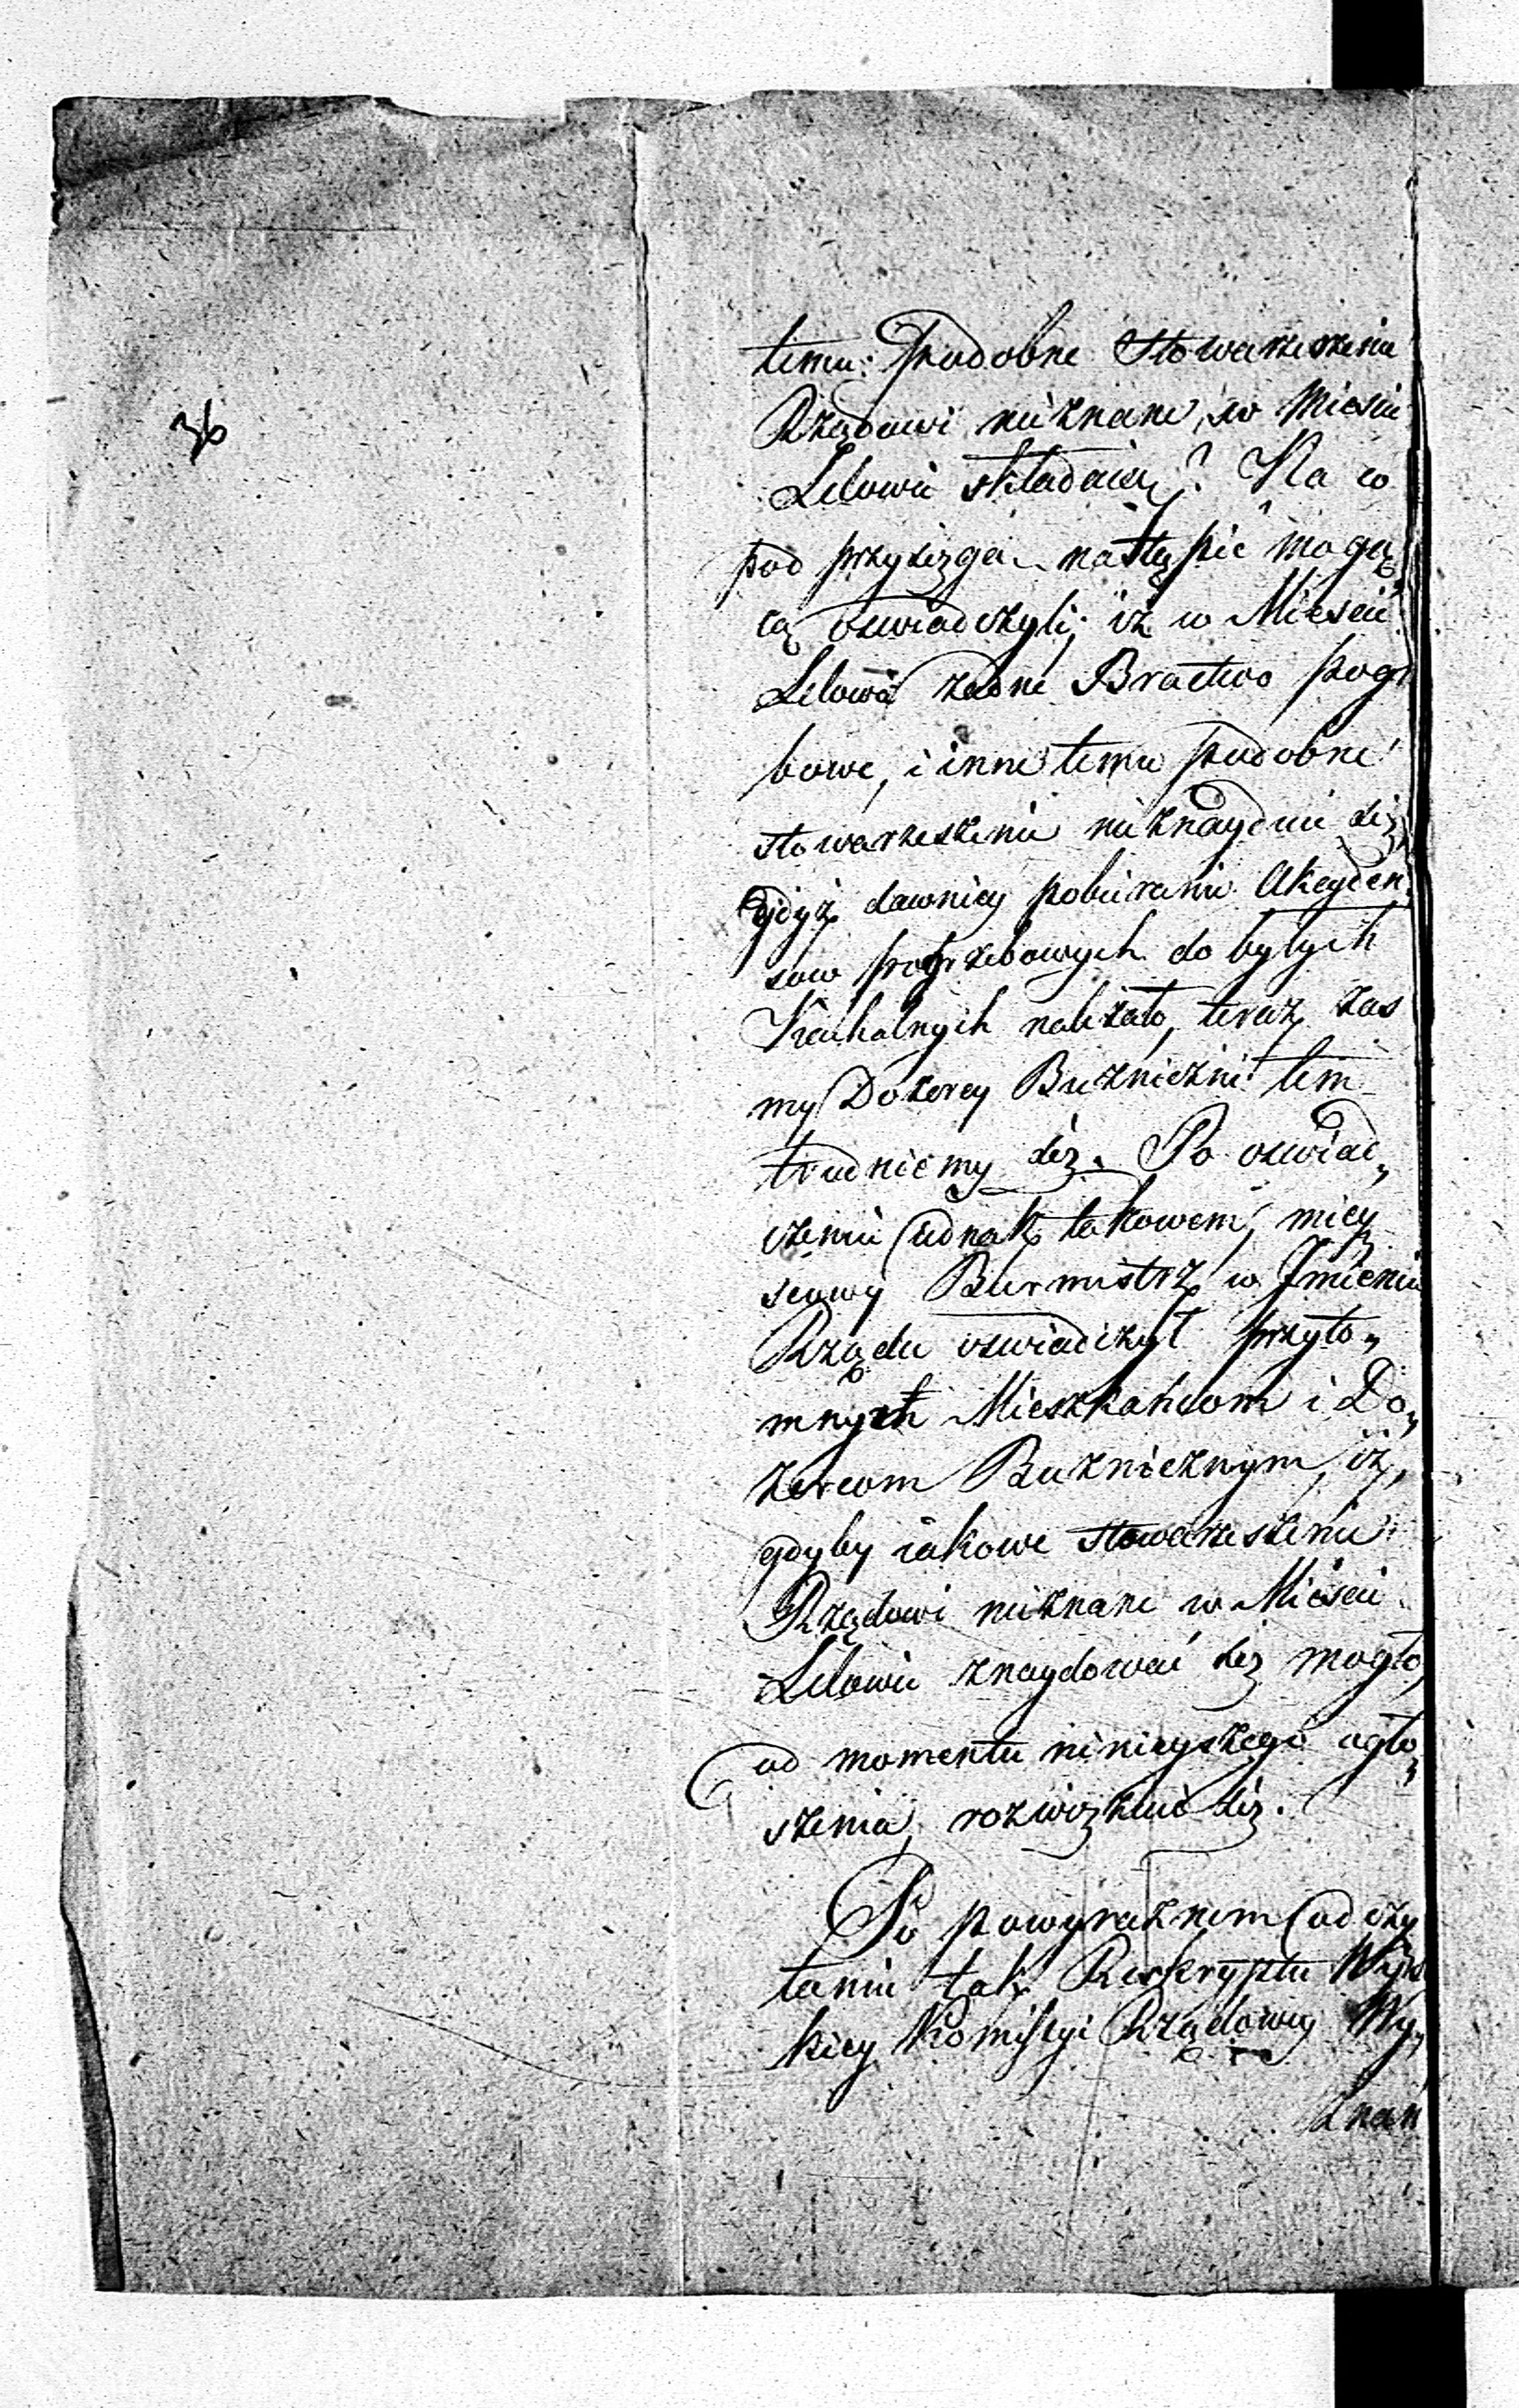 36
temu podobne stowarzeszenia
Rządowi nieznane, w Mieście
Lelowie składaią? Na co
pod przysięgą nastąpić mogą
cą oswiadczyli, iż w Mieście
Lelowie żadne Bractwo pogr
bowe, i inne temu podobne
stowarzeszenie nieznayduie się,
gdyż dawniey pobieranie Akcyden
sow pogrzebowych do byłych
Kahalnych należało, teraz zas
my Dozorcy Buzniczni tem
trudniemy się. Po oswiad„
czeniu iednak takowem, miey
scowy Burmistrz w Imieniu
Rządu oswiadczył przyto„
mnych Mieszkańcom i Do„
zorcom Buznicznym, iż,
gdyby iakowe stowarzeszenie
Rządowi nieznane w Mieście
Lelowie znaydować się mogło,
od momentu ninieyszego ogło„
szenia, rozwiązuie się.
Po powyraznem odczy
taniu tak Reskryptu Wyso
kiey Komissyi Rządowey Wy„
znań